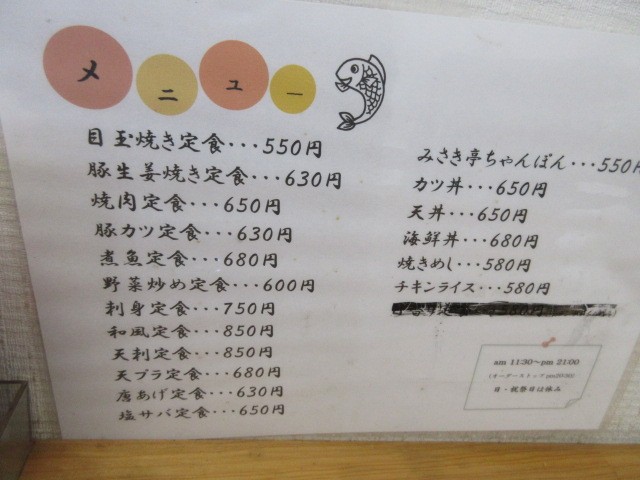 メニュー
目玉焼き定食・・・550円
豚生姜焼き定食・・・630円
焼肉定食・・・650円
豚カツ定食・・・630円
煮魚定食・・・680円
野菜炒め定食・・・600円
刺身定食・・・750円
和風定食・・・850円
天刺定食・・・850円
天プラ定食・・・680円
唐あげ定食・・・630円
塩サバ定食・・・650円
みさき亭ちゃんぽん・・・550円
カツ丼・・・650円
天丼・・・650円
海鮮丼・・・680円
焼きめし・・・580円
チキンライス・・・580円
am 11:30～pm 21:00
(オーダーストップ
日・祝祭日は休み